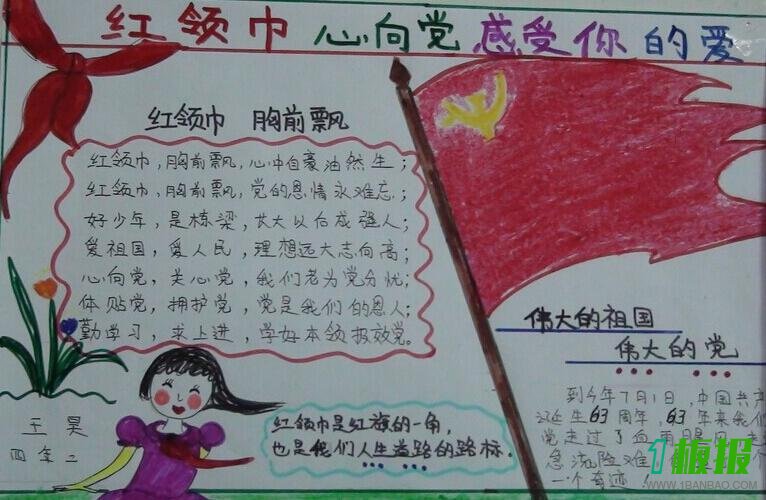 红领巾 心向党 感受你的爱
红领巾 胸前飘
红领巾，胸前飘，心中自豪油然生；
红领巾，胸前飘，党的恩情永难忘；
好少年，是栋梁，长大以后成强人；
爱祖国，爱人民，理想远大志向高；
心向党，关心党，我们老为党分忧；
体贴党，拥护党，党是我们的恩人；
勤学习，求上进，学好本领报效党。
王昊
四年二
红领巾是红旗的一角，
也是我们人生道路的路标.
伟大的祖国
伟大的党
到今年7月1日，中国共产
诞生63周年，63年来我们
党走过了
急流险难
一个奇迹！
1板报
WWW.1BANBAO.COM